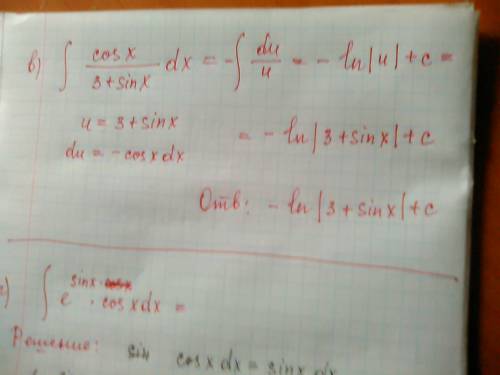 в) ∫ cosx / 3+sinx dx = -∫ du/u = - ln|u| + c =
u = 3+sinx
= - ln|3+sinx|+c
du = -cosxdx
Отв: - ln|3+sinx|+c
∫ e^sinx · cosxdx =
Решение: sin cosxdx = sinx dx